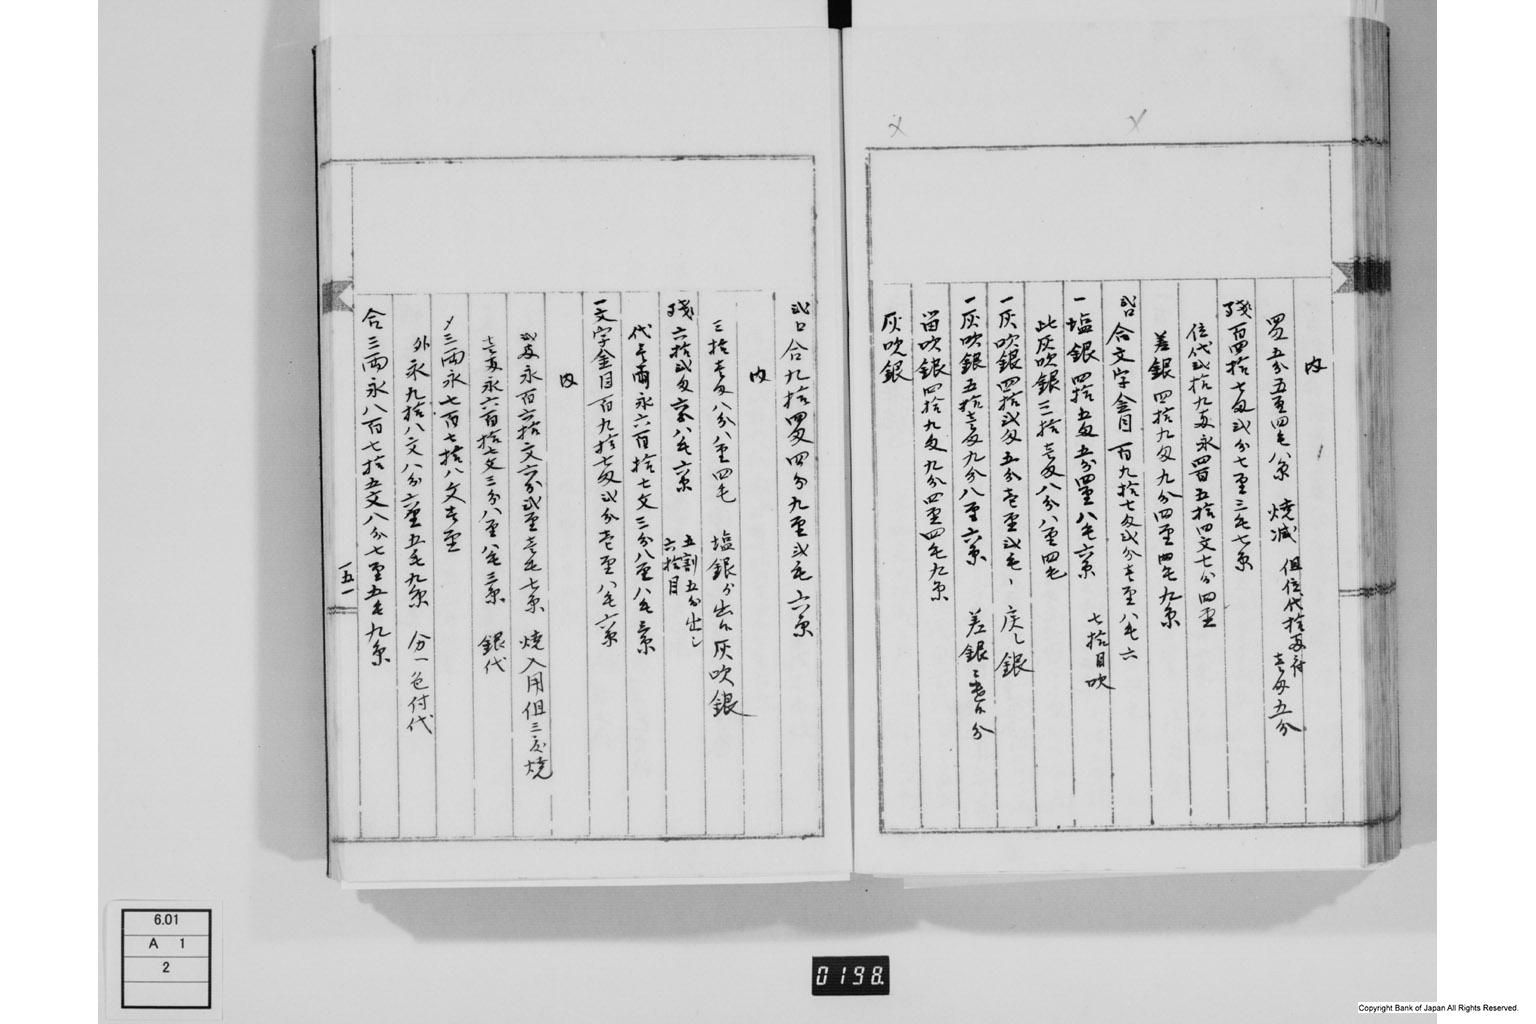 内
四匁五分五厘四毛八糸 焼減 但位代拾匁ニ付壱匁五分
残百四拾七匁弐分七厘三毛七糸
位代弐拾九匁永四百五拾四文七分四厘
差銀四拾九匁九分四厘四毛九糸
弐口合文字金目百九拾七匁弐分壱厘八毛六
一塩銀四拾五匁五分四厘八毛六糸 七拾目吹
此灰吹銀三拾壱匁八分八厘四毛
一灰吹銀四拾弐匁五分壱厘弐毛 戻し銀
一灰吹銀五拾壱匁九分八厘六糸 差銀
留吹銀四拾九匁九分四厘四毛九糸
灰吹銀
弐口合九拾四匁四分九厘弐毛六糸
内
三拾壱匁八分八厘四毛 塩銀分出ル灰吹銀
残六拾弐匁六分八毛六糸 五割五分出し 六拾目
代壱両永六百拾七文三分八厘八毛三糸
一文字金目百九拾七匁弐分壱厘八毛六糸
内
弐両永百六拾文六分弐厘壱毛七糸 焼入用但三度焼
壱両永六百拾七文三分八厘八毛三糸 銀代
〆三両永七百七拾八文壱厘
外永九拾八文八分六厘五毛九糸 分一色付代
合三両永八百七拾五文八分七厘五毛九糸
一五一
6.01
A 1
2
0198.
Copyright Bank of Japan All Rights Reserved.